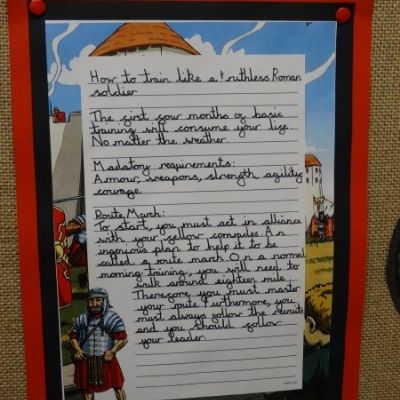 How to train like a ruthless Roman
soldier
The first four months of basic
training will consume your life.
No matter the weather.
Madatory requirements:
Armour, weapons, strength, agility
courage
Route March:
To start, you must act in alliance
with your fellow comrades. An
ingenious plan to help it to be
called a route march. On a normal
morning training, you will need to
walk around eighteen mile.
Therefore you must master
your route. Furthermore, you
must always follow the
and you should follow
your leader.